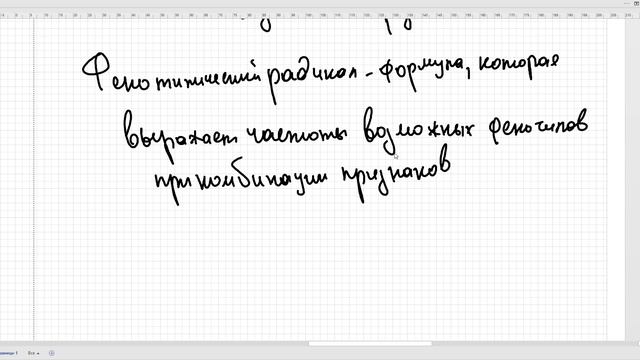 Фенотипический радикал - формула, которая
выражает частоты возможных фенотипов
при комбинации признаков
Все